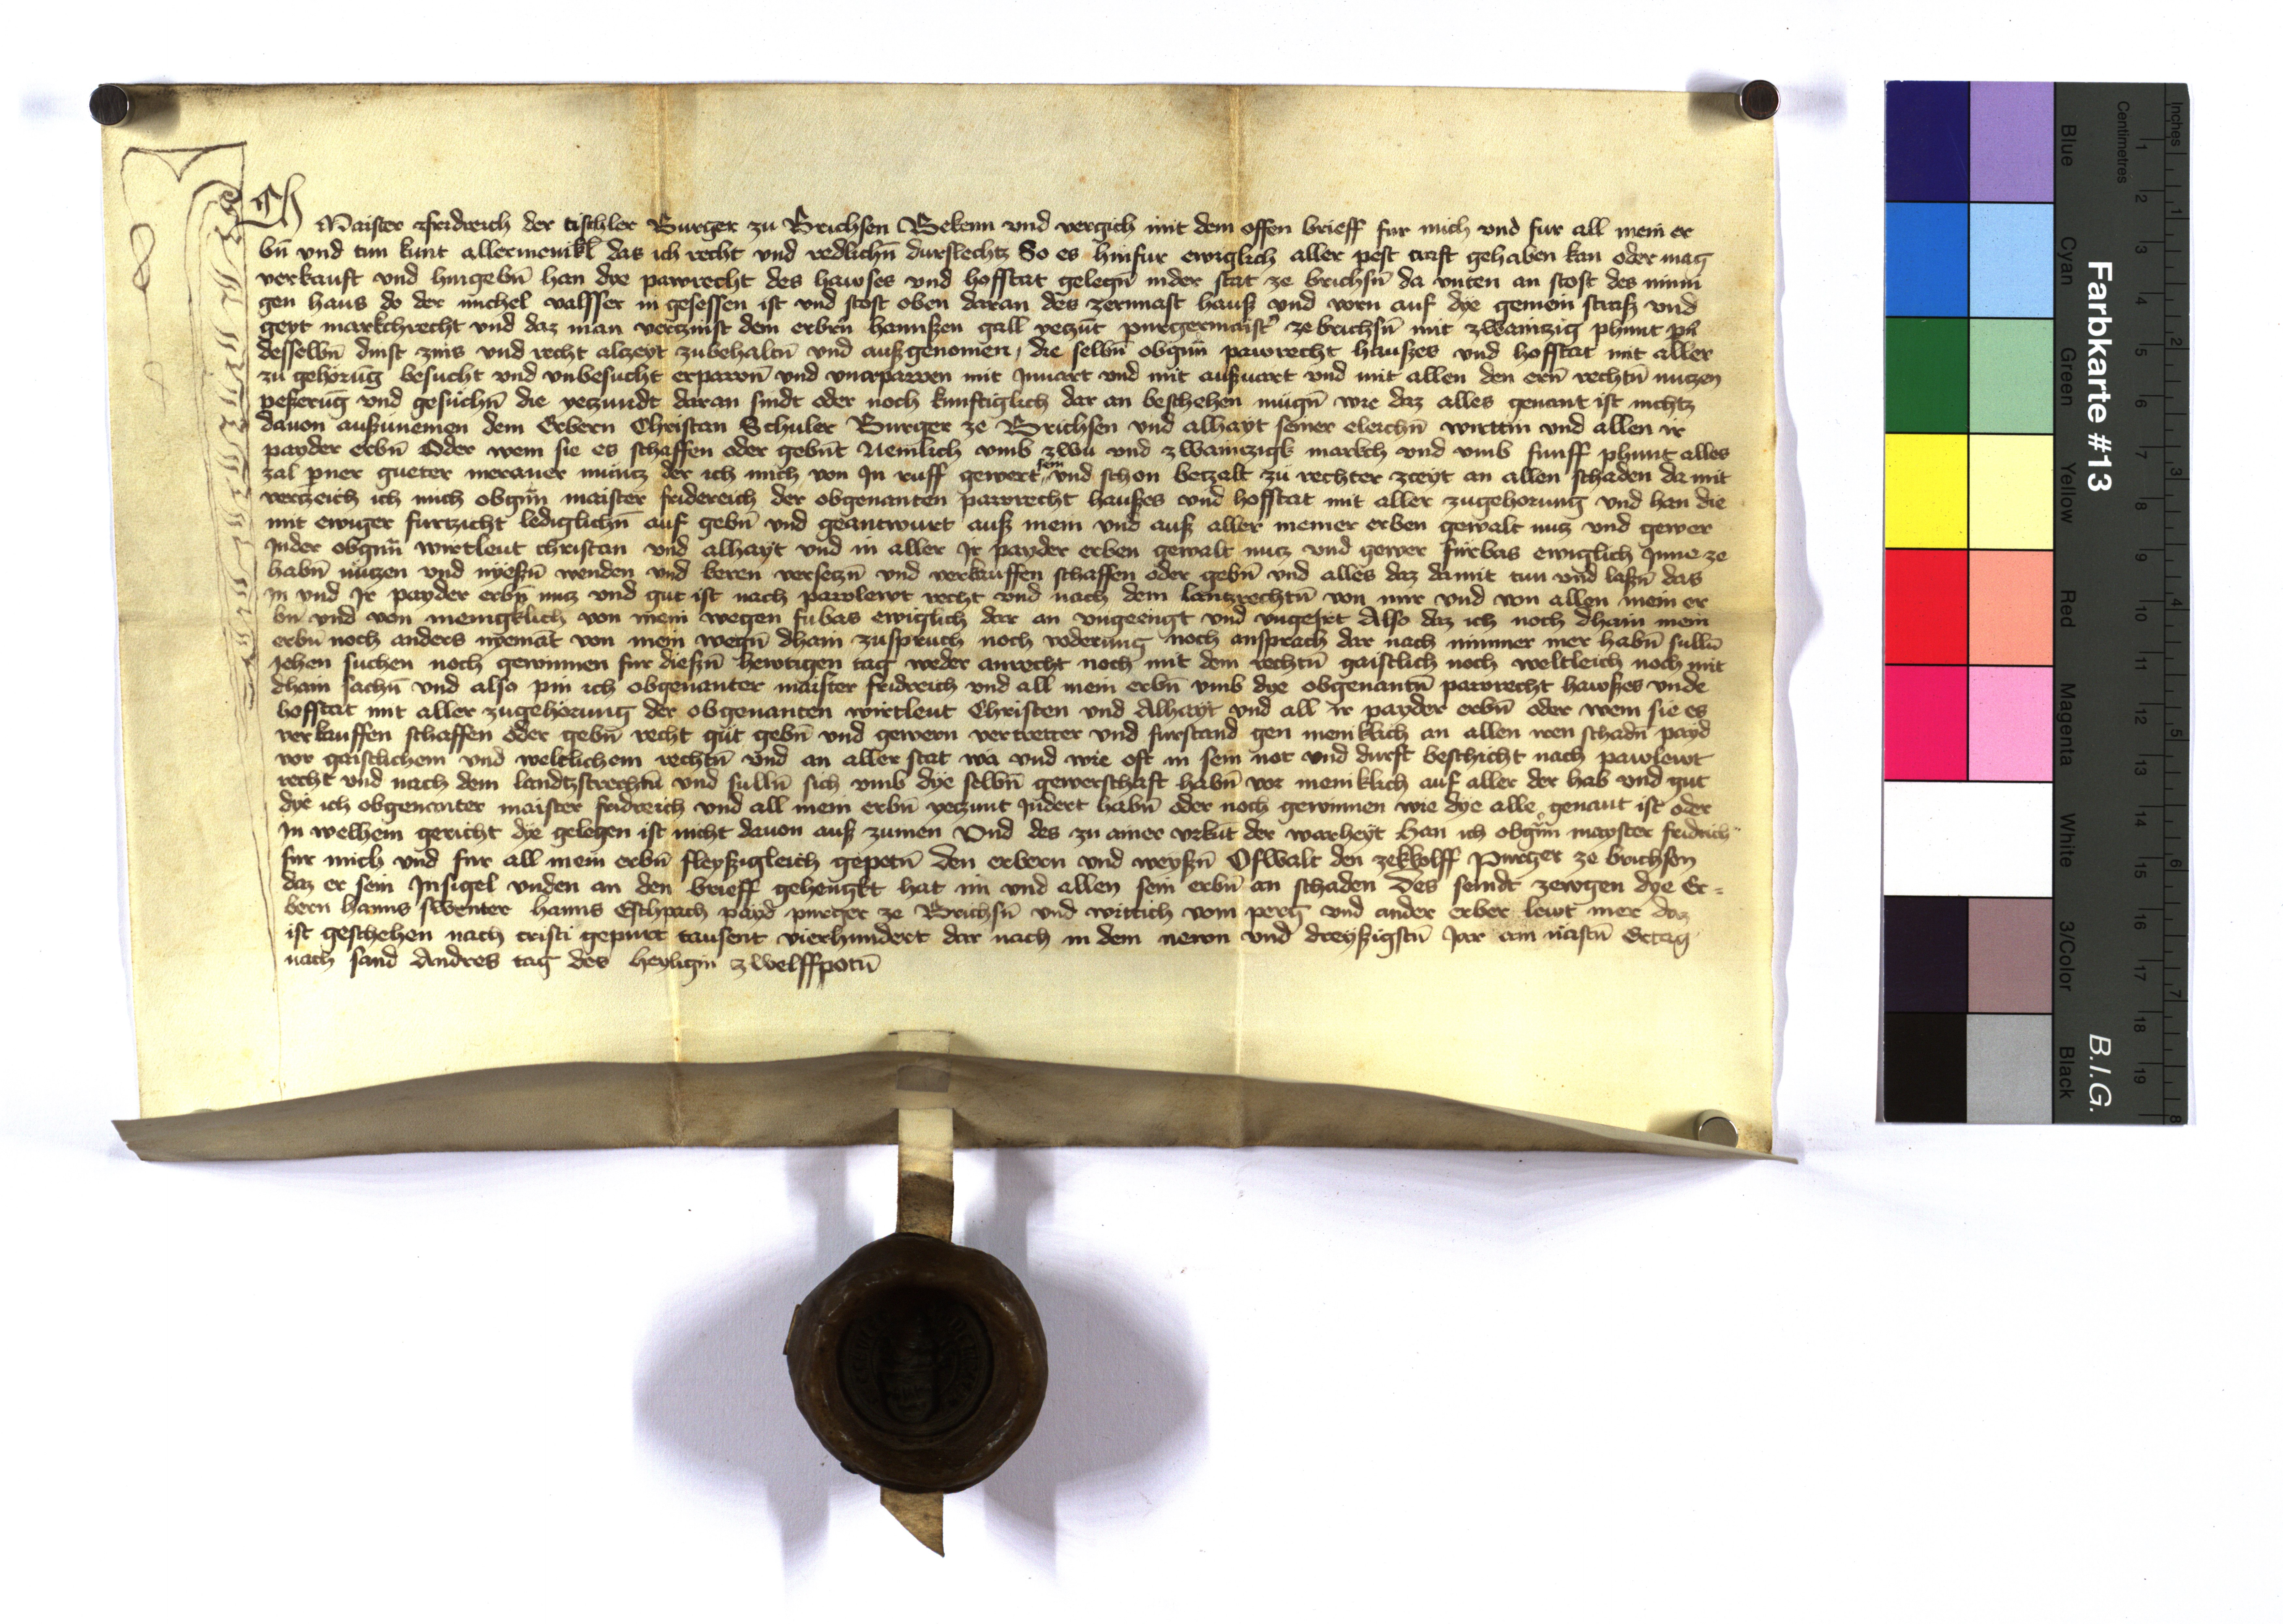 Ich Maister fridreich der tischler Burger zu Brichsen Bekenn vnd vergich mit dem offen brieff fur mich vnd fur all mein er
bn̄ vnd tun kunt allermenikl̄ das ich recht vnd redlichn̄ durslechtz So es hinfur ewiglich aller pest craft gehaben kan oder mag
verkauft vnd hingebn̄ han dye pawrecht des hawses vnd hofstat gelegn̄ inder stat ze brichsn̄ da vnten an stost des
gen haus do der michel valsser in gesessen ist vnd stost oben daran des zernnast hauß vnd vorn auf dye gemein straß vnd
geyt markchrecht vnd daz man vertzinst dem erbrn̄ hannßen gall yetzūt purgermaist̄ ze brichsn̄ mit zwaintzig phunt pn̄
desselbn̄ dinst zins vnd recht alczeyt zubehaltn̄ vnd außgenomen, die selbn̄ obgnn̄ pawrecht haußes vnd hofstat mit aller
zu gehörūg besucht vnd vnbesucht erpawn̄ vnd vnerpawen mit Inuart vnd mit außuart vnd mit allen den ern̄ rechtn̄ nutzen
peßerūg vnd gesuchn̄ die yetzundt daran sindt oder noch kunftiglich dar an beschehen mugn̄ wie daz alles genant ist nichtz
dauon außzunemen dem Erbern Christan Schuler Burger ze Brichsen vnd alhayt seiner eleichn̄ wirttin vnd allen ir
payder erbn̄ Oder wem sie es schaffen oder gebnt Nemlich vmb zwu vnd zwaintzigk markch vnd vmb funff phunt alles
zal pner gueter meraner muncz der ich mich von In ruff gewert sein vnd schon betzalt zu rechter zceyt an allen schaden da mit
vertzeich ich mich obgnn̄ maister fridereich der obgenanten pawrecht haußes vnd hofstat mit aller zugehorung vnd han die
mit ewiger furtzicht lediglichn̄ auf gebn̄ vnd geantwurt auß mein vnd auß aller meiner erben gewalt nutz vnd gewer
Inder obgnn̄ wirtleut christan vnd alhayt vnd in aller Ir payder erben gewalt nutz vnd gewer furbas ewiglich Inne ze
habn̄ nutzen vnd nyeßn̄ wenden vnd keren versetzn̄ vnd verkauffen schaffen oder gebn̄ vnd alles daz damit tun vnd laßn̄ das
In vnd Ir payder erbn̄ nutz vnd gut ist nach pawlewt recht vnd nach dem lantzrechtn̄ von mir vnd von allen mein er
bn̄ vnd von menigklich von mein wegen fubas ewiglich dar an vngeengt vnd vngeirt Also daz ich noch dhain mein
erbn̄ noch anders nyemāt von mein wegn̄ dhain zuspruch noch voderung noch ansprach dar nach nimmer mer habn̄ sulln̄
Iehen suchen noch gewinnen fur dießn̄ hewtigen tag weder anrecht noch mit dem rechtn̄ gaistlich noch weltleich noch mit
dhain sachn̄ vnd also pin ich obgenanter maister fridreich vnd all mein erbn̄ vmb dye obgenantn̄ pawrecht hawßes vnde
hofstat mit aller zugehörung der obgenanten wirtleut Christen vnd Alhayt vnd all ir payder erbn̄ oder wem sie es
verkauffen schaffen oder gebn̄ recht gut gebn̄ vnd gewern vertretter vnd furstand gen meniklich an allen iren schadn̄ payd
vor gaistlichem vnd weltlichem rechtn̄ vnd an aller stat wa vnd wie oft in sein not vnd durft beschicht nach pawlewt
recht vnd nach dem landtzstrechtn̄ vnd sulln̄ sich vmb dye selbn̄ gewerschaft habn̄ vor meniklich auf aller der hab vnd gut
dye ich obgenanter maister fridreich vnd all mein erbn̄ yetzunt Indert habn̄ oder noch gewinnen wie dye alle genant ist oder
In welhem gericht dye gelegen ist nicht dauon auß zumen Vnd des zu ainer vrkūt der warheyt han ich obgnn̄ mayster fridrich
fur mich vnd fur all mein erbn̄ fleyßigleich gepetn̄ den erbern vnd weyßn̄ Oswalt den zekkolff Purger ze brichsen
daz er sein Insigel vnden an den brieff gehengkt hat im vnd allen sein erbn̄ an schaden Des seindt zewgen dye Er=
bern hanns swenter hanns Eschpach payd purger ze Brichsn̄ vnd wittich vom perg vnd ander erber lewt mer daz
ist geschehen nach cristi gepurt tausent vierhundert dar nach in dem newn vnd dreyßigstn̄ Jar am nastn̄ Ertag
nach sand Andres tag des heyligin zwelffpotn̄
Farbkarte #13
B.I.G.
Centimetres
Inches
Blue
Cyan
Green
Yellow
Red
Magenta
White
3/Color
Black
1 2 3 4 5 6 7 8 9 10 11 12 13 14 15 16 17 18 19
1 2 3 4 5 6 7 8